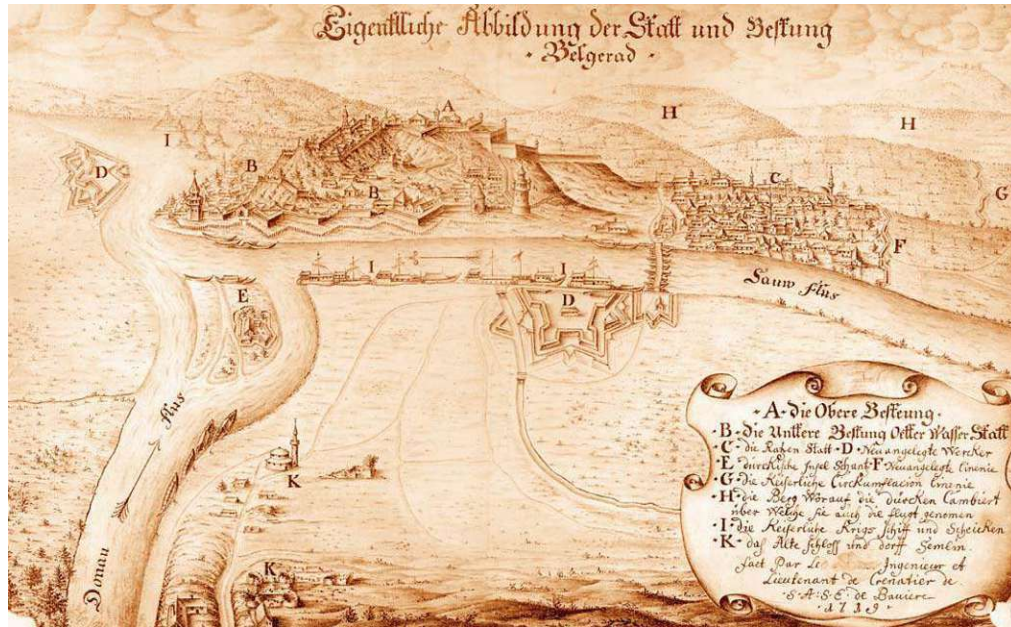 Eigentlliche Abbildung der Statt und Vestung
· Belgerad ·
A
I
H
H
D
B
B
C
G
F
I
I
E
D
Sauw flus
flus
Donau
K
K
· A · die Obere Vesteung ·
· B · die Unttere Vestung Oetter Wasser Statt
· C · die Ratzen Statt · D · Neuangelegte Wercker
· E · dürckische Insel Schantz · F · Neuangelegte Linenie
· G · die Keiserliche Circkumflacion Linenie
· H · die Berg Worauf die dürcken Cambiert
über Welche sie auch die flugt genomen
· I · die Keiserliche Krigs schiff und Scheicken
· K · das Alte schloss und dorff Semlin
fact Par Le Ingenieur et
Lieutenant de Grenatier de
· S · A · S · E · de Baviere ·
· 1719 ·